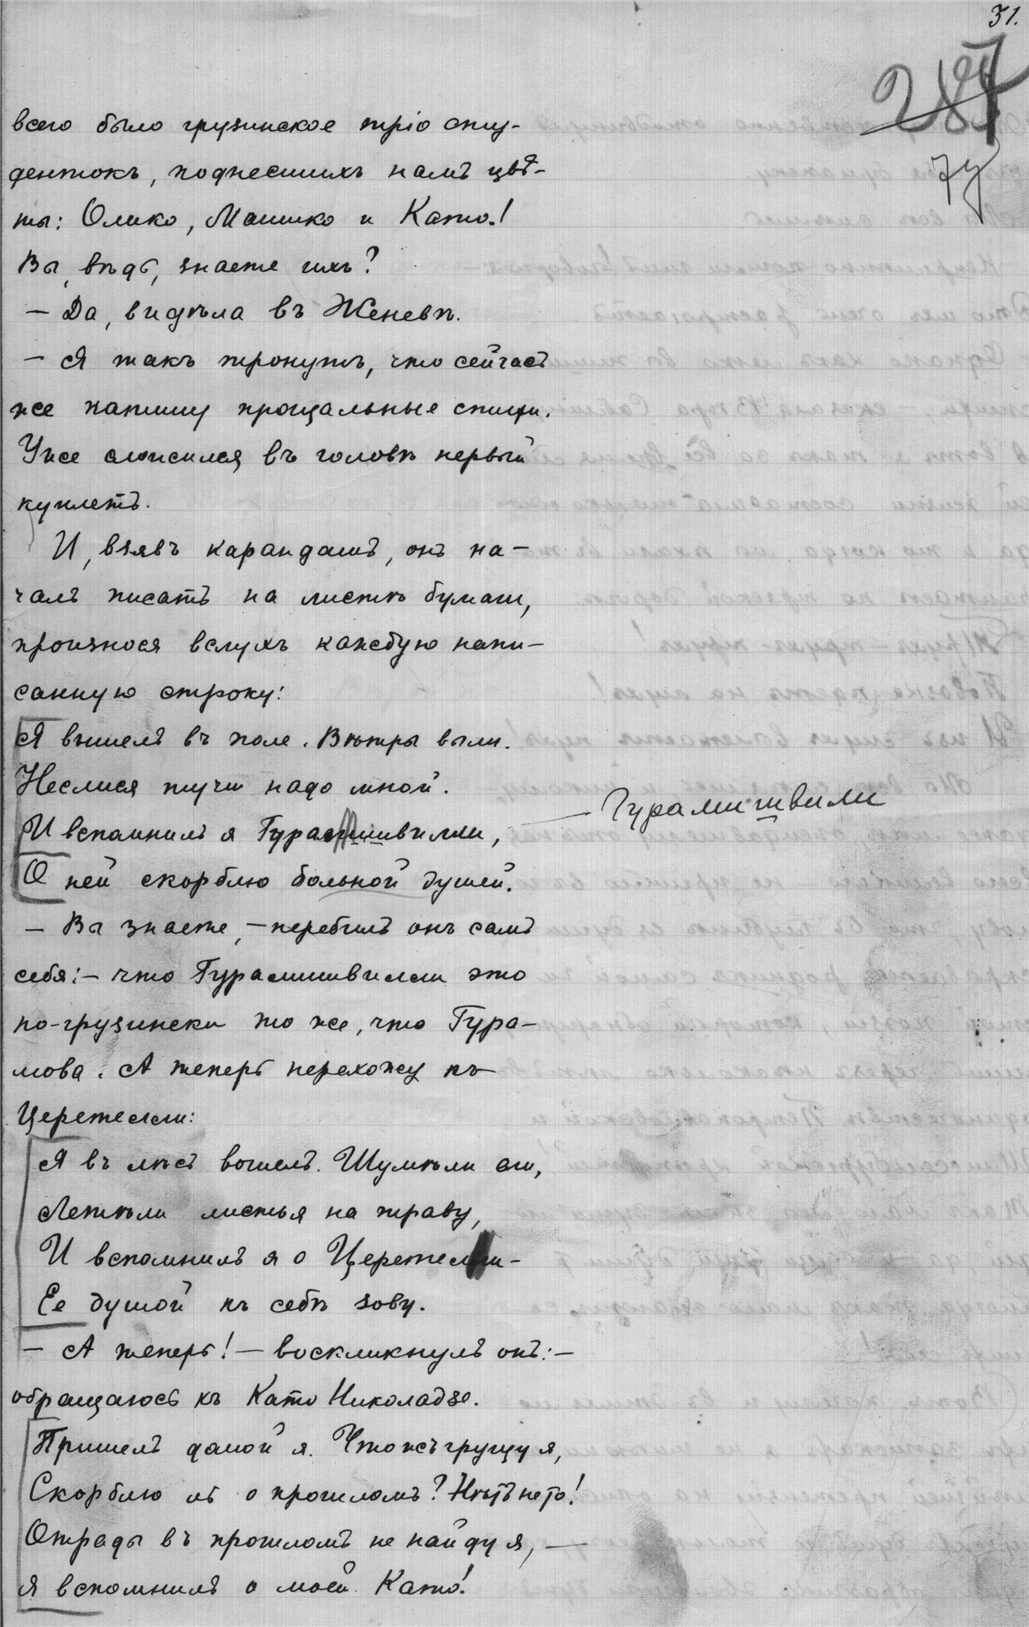 31.
287
74
всего было грузинское трiо сту-
дентокъ, поднесшихъ намъ цвѣ-
ты: Олико, Машико и Като!
Вы, вѣдь, знаете ихъ?
— Да, видѣла въ Женевѣ.
— Я такъ тронутъ, что сейчасъ
же напишу прощальные стихи.
Уже сложился въ головѣ первый
куплетъ.
И, взявъ карандашъ, онъ на-
чалъ писать на листкѣ бумаги,
произнося вслухъ каждую напи-
санную строку:
Я вышелъ въ поле. Вѣтры выли.
Неслися тучи надо мной.
И вспомнилъ я Гурамишвили, — Гурамишвили
О ней скорблю больной душей.
— Вы знаете, — перебилъ онъ самъ
себя: — что Гурамишвили это
по-грузински то же, что Гура-
мова. А теперь перехожу къ
Церетелли:
Я въ лѣсъ вошелъ. Шумѣли ели,
Летѣли листья на траву,
И вспомнилъ я о Церетели —
Ее душой къ себѣ зову.
— А теперь! — воскликнулъ онъ: —
обращаюсь къ Като Николадзе.
Пришелъ домой я. Что жъ грущу я,
Скорблю ль о прошломъ? Нѣтъ не то!
Отрады въ прошломъ не найду я, —
Я вспомнилъ о моей Като!